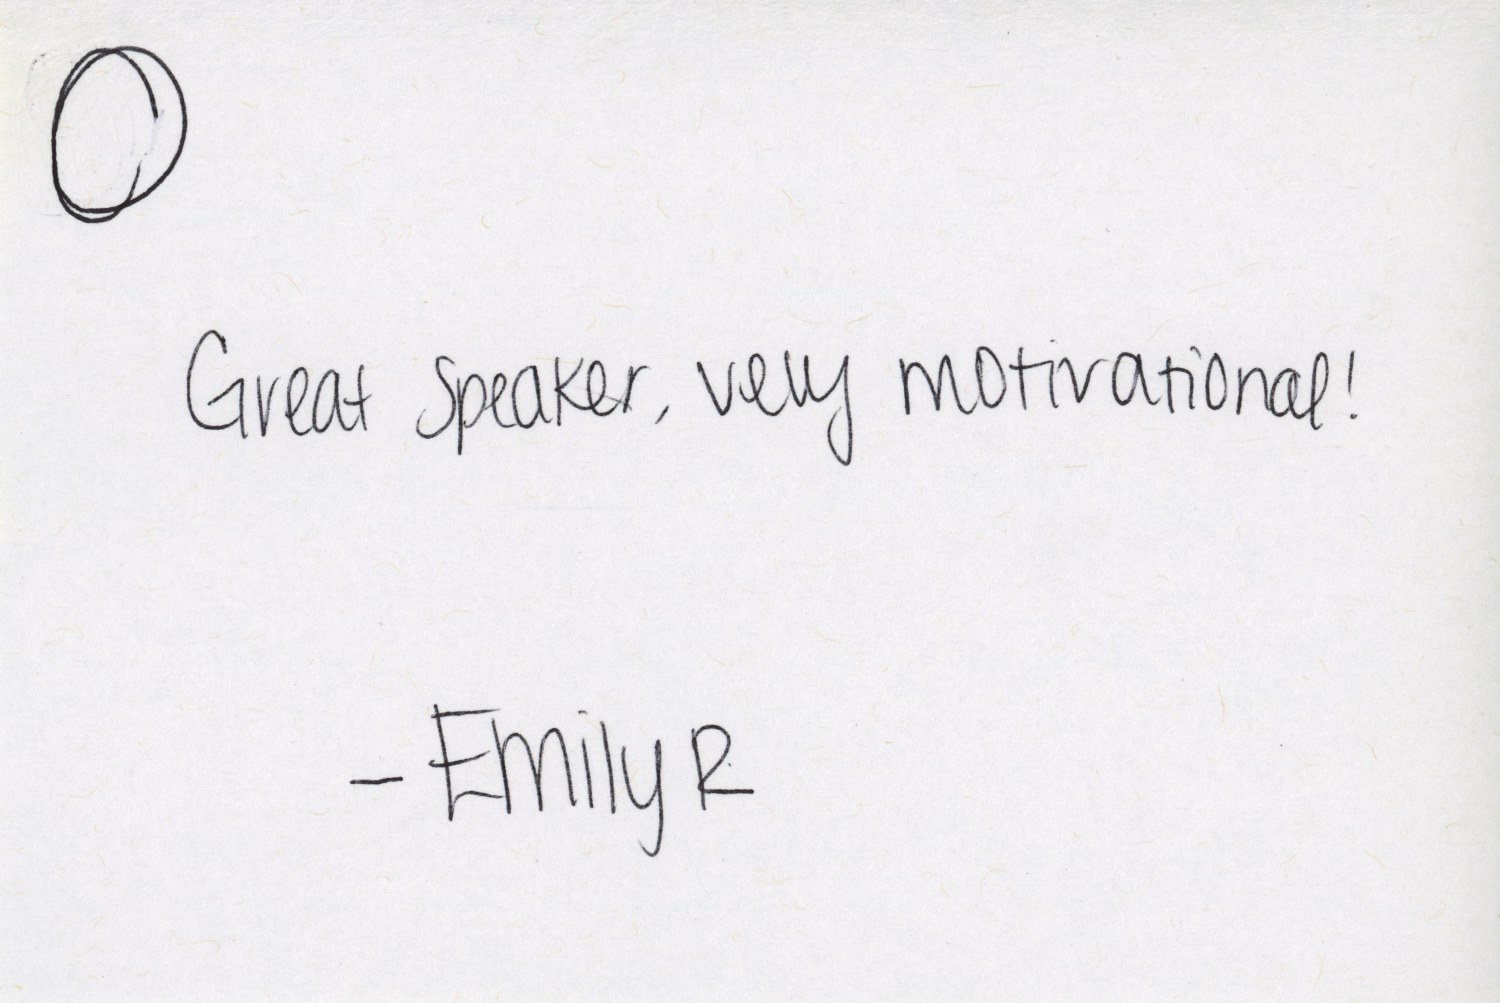 Great speaker, very motivational!
- Emily R